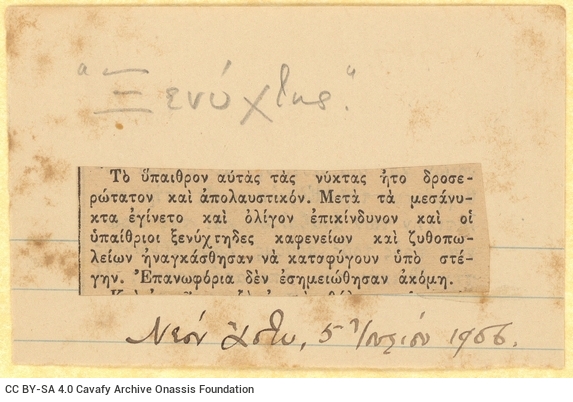 "Ξενύχτης."
Τὸ ὕπαιθρον αὐτὰς τὰς νύκτας ἦτο δροσε-
ρώτατον καὶ ἀπολαυστικόν. Μετὰ τὰ μεσάνυ-
κτα ἐγίνετο καὶ ὀλίγον ἐπικίνδυνον καὶ οἱ
ὑπαίθριοι ξενύχτηδες καφενείων καὶ ζυθοπω-
λείων ἠναγκάσθησαν νὰ καταφύγουν ὑπὸ στέ-
γην. Ἐπανωφόρια δὲν ἐσημειώθησαν ἀκόμη.
Νέον Ἄστυ, 5 1906.
CC BY-SA 4.0 Cavafy Archive Onassis Foundation